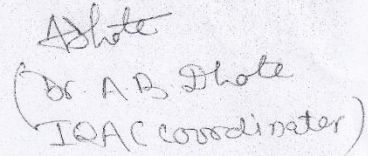 ADhote
(Dr. A B Dhote
IQAC coordinater)